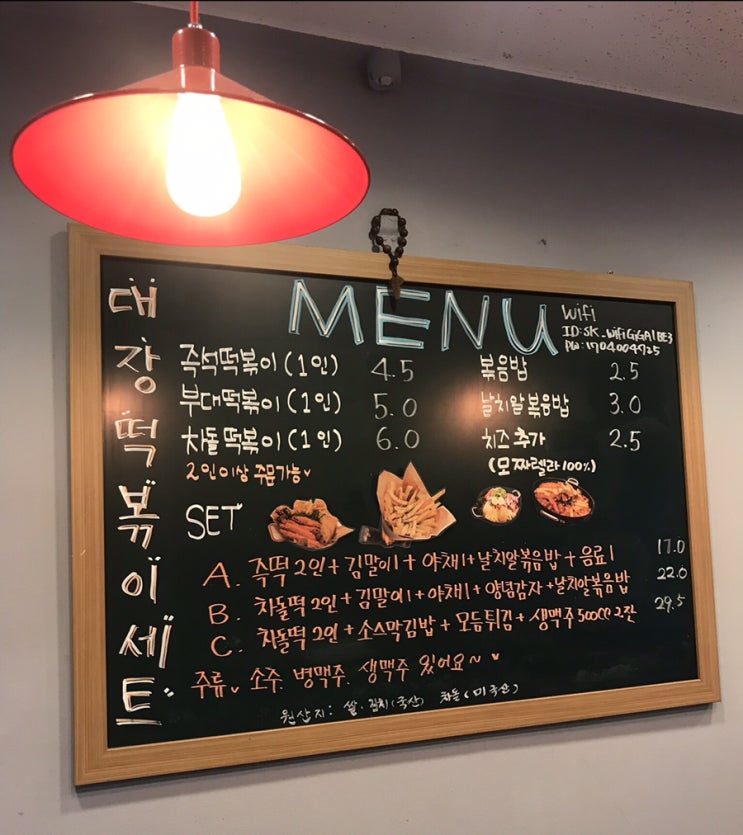 대장떡볶이세트
MENU
wifi
ID:SK_WiFiGiGA1BE3
PW:1704004725
즉석떡볶이(1인) 4.5
부대떡볶이(1인) 5.0
차돌떡볶이(1인) 6.0
2인이상 주문가능
볶음밥 2.5
날치알볶음밥 3.0
치즈추가 2.5
(모짜렐라100%)
SET
A. 즉떡2인+김말이1+야채1+날치알볶음밥+음료1 17.0
B. 차돌떡2인+김말이1+야채1+양념감자+날치알볶음밥 22.0
C. 차돌떡2인+소스막김밥+모듬튀김+생맥주500CC2잔 29.5
주류 소주. 병맥주. 생맥주 있어요~
원산지: 쌀.김치(국산) 차돌(미국산)